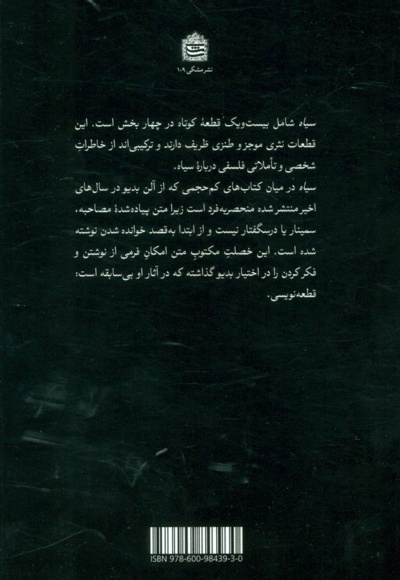 نشر مشکی ۱۰۹
سیاه شامل بیست‌ویک قطعهٔ کوتاه در چهار بخش است. این
قطعات نثری موجز و طنزی ظریف دارند و ترکیبی‌اند از خاطراتِ
شخصی و تأملاتی فلسفی دربارهٔ سیاه.
سیاه در میان کتاب‌های کم‌حجمی که از آلن بدیو در سال‌های
اخیر منتشر شده منحصربه‌فرد است زیرا متن پیاده‌شدهٔ مصاحبه،
سمینار یا درسگفتار نیست و از ابتدا به‌قصد خوانده شدن نوشته
شده است. این خصلتِ مکتوبِ متن امکانِ فرمی از نوشتن و
فکر کردن را در اختیار بدیو گذاشته که در آثار او بی‌سابقه است:
قطعه‌نویسی.
ISBN 978-600-98439-3-0